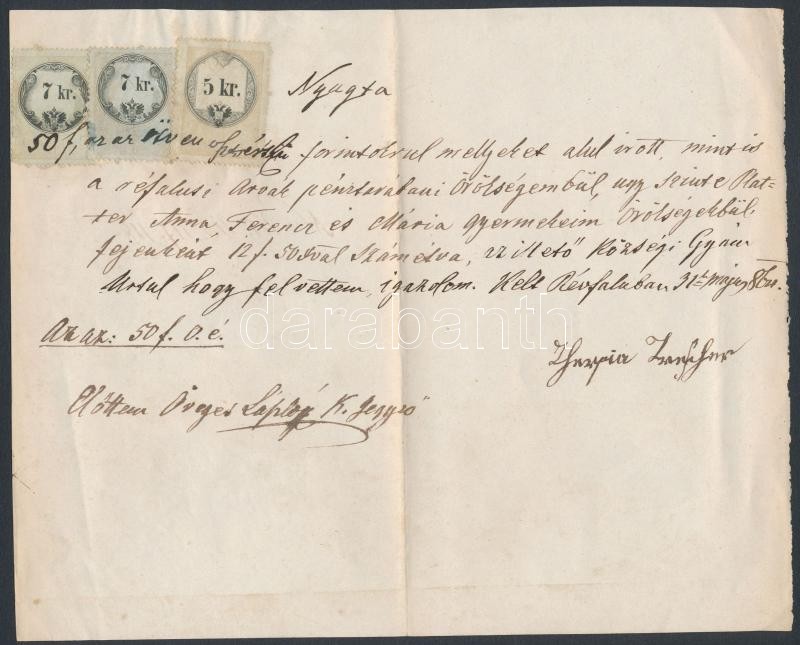 7 kr. 7 kr. 5 kr.
Nyugta
50 f, az az ötven osztrák forintokrul mellyeket alul irott, mint is
a réfalusi árvák pénztárábani Örökségembül, ugy szinte Plat-
ter Anna, Ferencz és Mária gyermekeim Örökségekbül
fejenként 12 f. 50 Számitva, az illető Községi Gyám
Urtul hogy felvettem, igazolom. Kelt Révfaluban 31 május
Az az: 50 f. o. é.
darabanth
Trescher
Előttem Öveges K. Jegyző